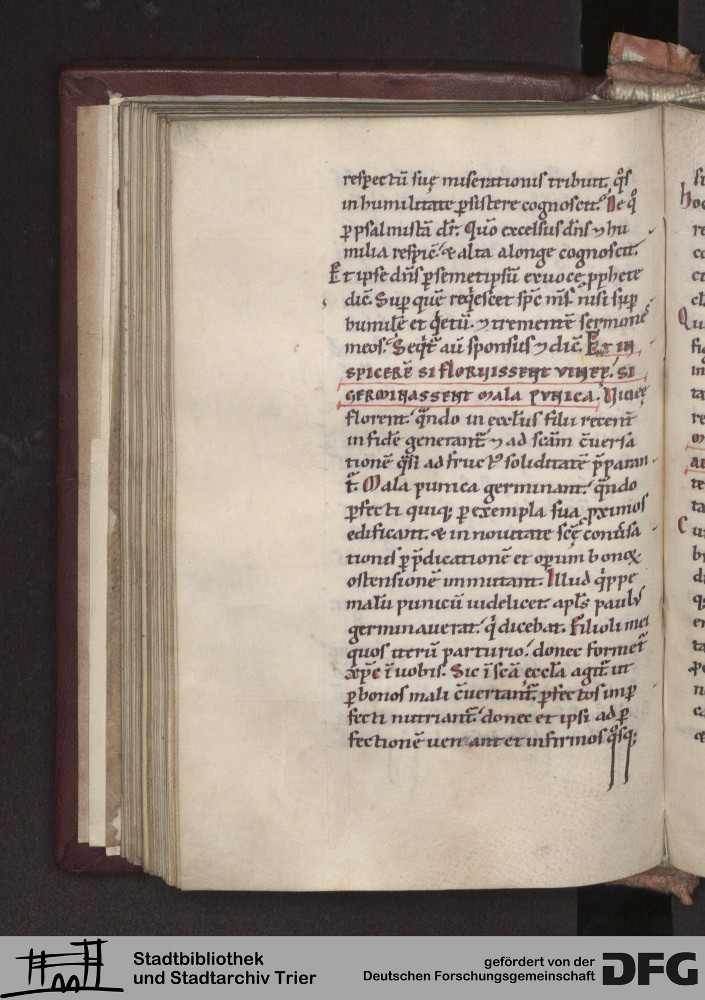 respectū suę miserationis tribuit. q̊s
in humilitate ꝑsistere cognoscit. De q̊
ꝑ psalmistā dr̄. Quō excelsus dn̄s ⁊ hu
milia respic̄. & alta alonge cognoscit.
Et ipse dn̄s ꝑ semetipsū ex uoce ꝓphete
dic̄. Suꝑ quē req̇escet sp̄c m̄s. nisi suꝑ
humilē et q̇etū. ⁊ trementē sermones
meos. Seqt̄ aū sponsus ⁊ dic̄. Et in
spicerē si floruissent vineę. si
germinassent mala punica. Vineę
florent. q̄ndo in ecclıı̄s filii recent̄
in fidē generant̄ ⁊ ad scām c̄uersa
tionē q̄si ad fructꝰ soliditatē p̄paran
t̄. Mala punica germinant. q̄ndo
ꝑfecti quiq; ꝑ exempla sua ꝓximos
edificant. & in nouitate scę̄ conūsa
tionis ꝑ p̄dicationē et operum bonoꝝ
ostensionē inmutant. Illud q̇ppe
malū punicū uidelicet apl̄s paulꝰ
germinauerat. q̇ dicebat. Filioli mei
quos iterū parturio. donec formet̄
xp̄c ī uobis. Sic ī scā eccl̄a agit̄. ut
ꝑ bonos mali c̄uertant̄. ꝑfectos inꝑ
fecti nutriant̄. donec et ipsi ad ꝑ
fectionē ueniant et infirmos q̊sq;
Stadtbibliothek
und Stadtarchiv Trier
gefördert von der
Deutschen Forschungsgemeinschaft
DFG